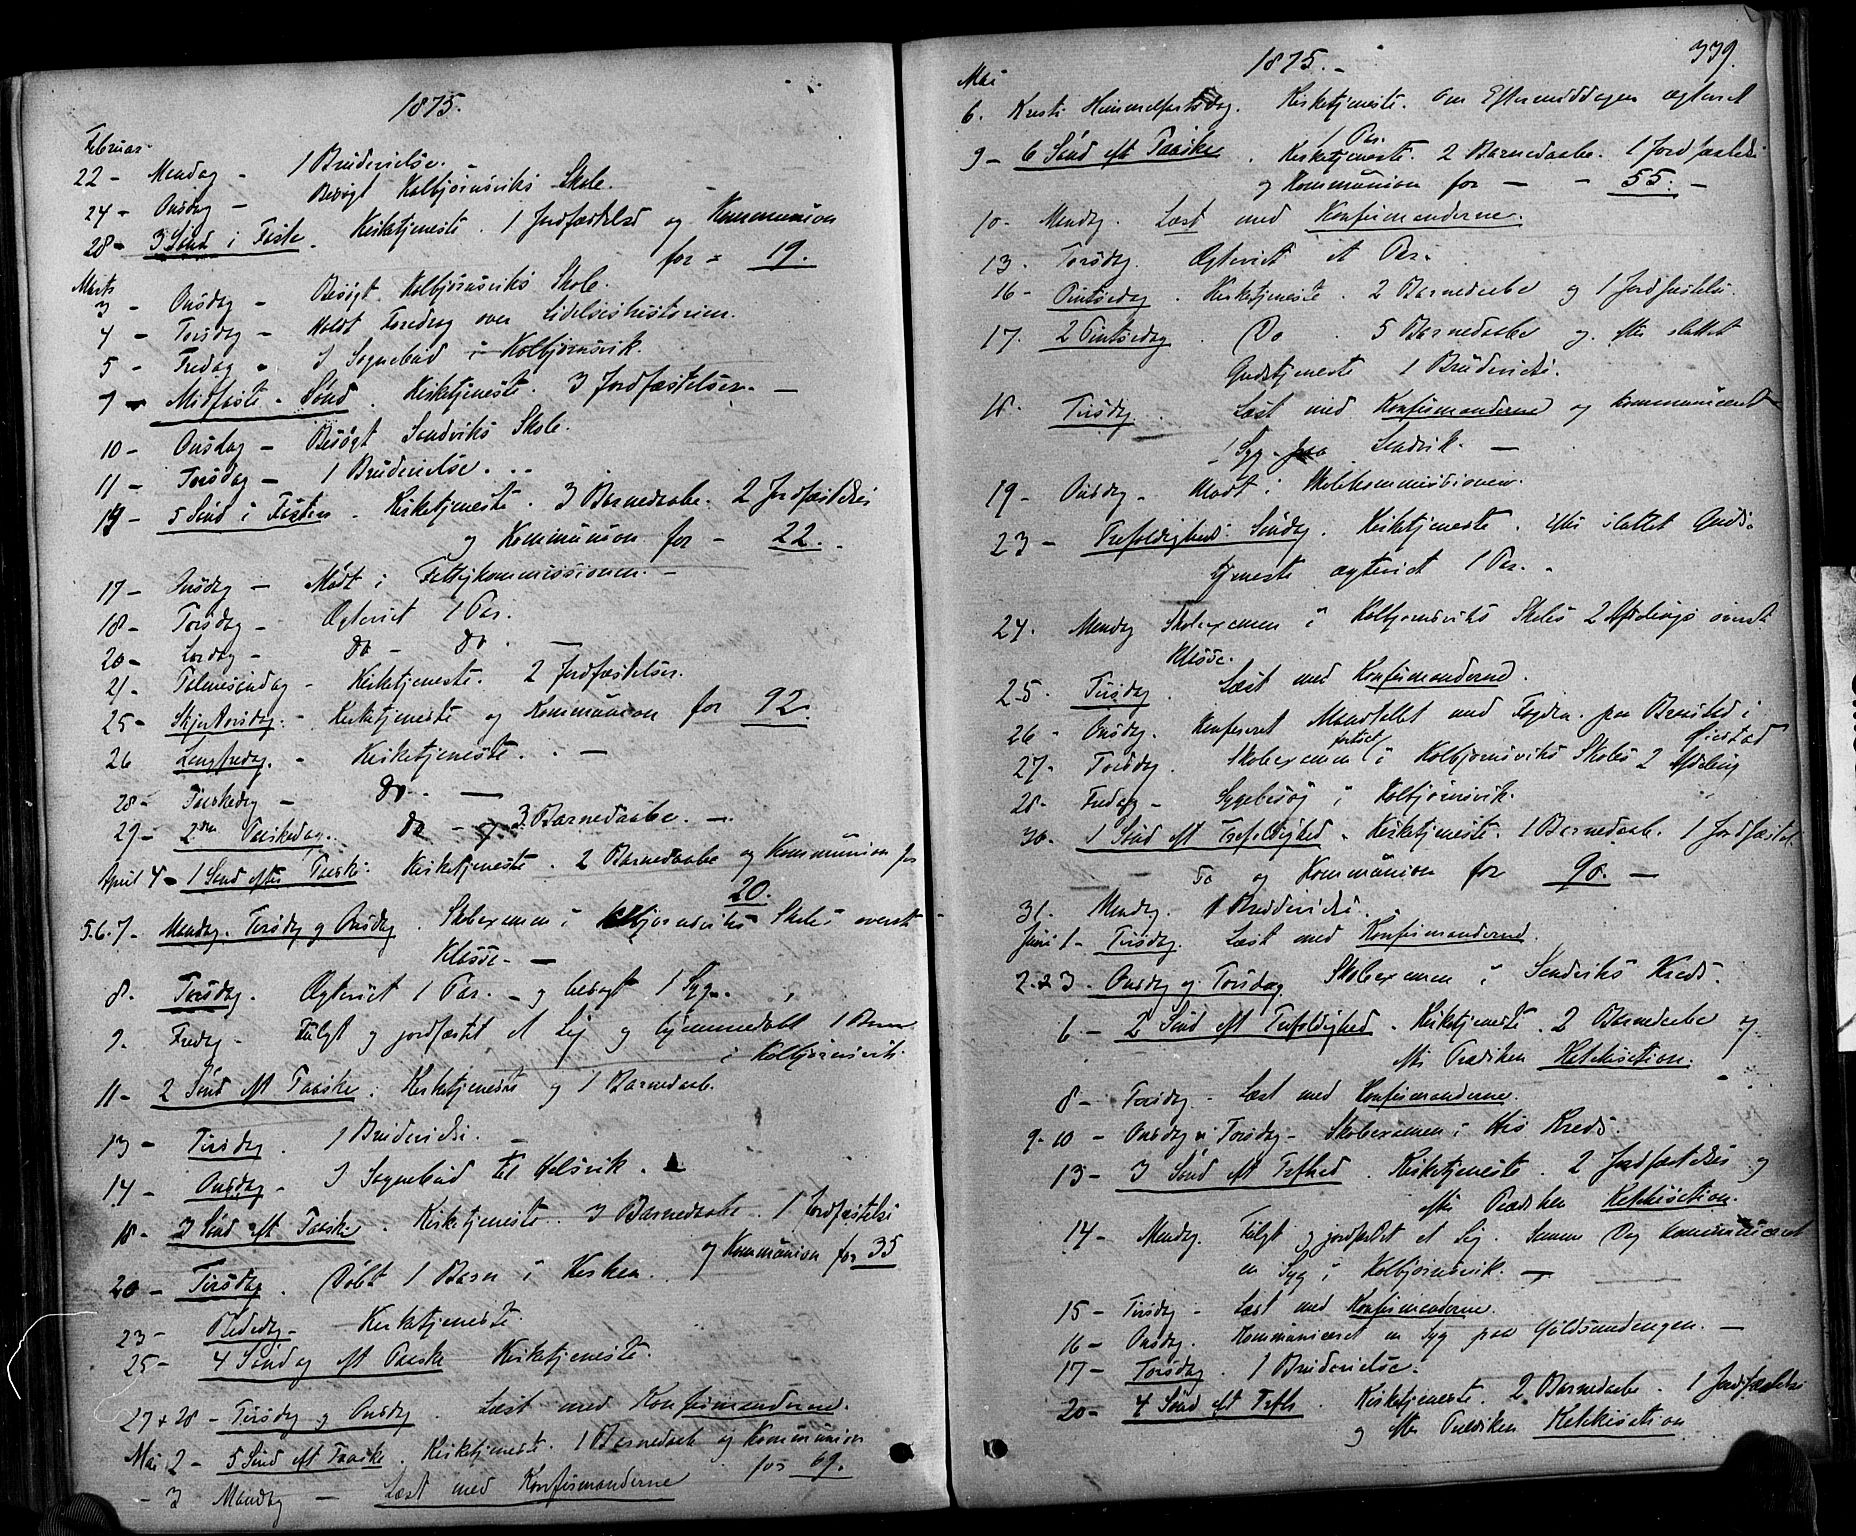 1875.
Februar.
22 - Mandag - 1 Brudevielse.
24 - Onsdag - Besøgt Kolbjørnsviks Skole.
28 - 3 Sønd i Faste. Kirketjeneste. 1 Jordfæstelse og Kommunion
for - 19.
Marts
3 - Onsdag - Besøgt Kolbjørnsviks Skole.
4 - Torsdag - Holdt Foredrag over Lidelseshistorien.
5 - Fredag - I Sognebud i Kolbjørnsvik.
7 - Midfaste - Sønd. Kirketjeneste. 3 Jordfæstelser. -
10 - Onsdag - Besøgt Sandviks Skole.
11 - Torsdag - 1 Brudevielse.
14 - 5 Sønd i Fasten. Kirketjeneste. 3 Barnedaabe. 2 Jordfæstelser
og Kommunion for - 22. -
17 - Onsdag - Mødt i Fattigkommissionen. -
18 - Torsdag - Ægteviet 1 Par.
20 - Lørdag - do - do -
21 - Palmesøndag - Kirketjeneste. 2 Jordfæstelser.
25 - Skjærtorsdag. - Kirketjeneste og Kommunion for 92.
26 Langfredag. - Kirketjeneste. -
28 - Paaskedag - do. -
29 - 2den Paaskedag. do - og 3 Barnedaabe. -
April 4 - 1 Sønd efter Paaske. Kirketjeneste. 2 Barnedaabe og Kommunion for
20.
5. 6. 7. Mandag. Tirsdag og Onsdag. Skoleexamen i Kolbjørnsviks Skoles øverste
Klasse. -
8. Torsdag. Ægteviet 1 Par. - og besøgt 1 Syg.
9. Fredag - Fulgt og jordfæstet et Lig og hjemmedøbt 1 Barn
i Kolbjørnsvik.
11 - 2 Sønd eft Paaske. Kirketjeneste og 1 Barnedaab.
13 - Tirsdag. 1 Brudevielse. -
14 - Onsdag - I Sognebud til Helsvik.
18 - 3 Sønd eft Paaske. Kirketjeneste. 3 Barnedaabe. 1 Jordfæstelse
og Kommunion for 35
20 - Tirsdag. Døbt 1 Barn i Kirken.
23 - Bededag - Kirketjeneste.
25 - 4 Søndag eft Paaske Kirketjeneste.
27 + 28 - Tirsdag og Onsdag. Læst med Konfirmanderne.
Mai 2 - 5 Sønd eft Paaske. Kirketjeneste. 1 Barnedaab og Kommunion
for 69.
- 3 Mandag - Læst med Konfirmanderne
1875. -
339.
Mai
6. Kristi Himmelfartsdag. Kirketjeneste. Om Eftermiddagen ægteviet
1 Par.
9 - 6 Sønd eft Paaske. Kirketjeneste. 2 Barnedaabe. 1 Jordfæstelse
og Kommunion for - - 55. -
10 - Mandag. Læst med Konfirmanderne.
13. Torsdag. Ægteviet et Par.
16 - Pintsedag. Kirketjeneste. 2 Barnedaabe og 1 Jordfæstelse.
17. 2 Pintsedag. Do 5 Barnedaabe og efter sluttet
Gudstjeneste 1 Brudevielse.
18. Tirsdag. Læst med Konfirmanderne og kommuniceret
1 Syg paa Sandvik. -
19 - Onsdag - Mødt i Skolekommissionen.
23 - Trefoldigheds Søndag. Kirketjeneste. Efter sluttet Guds-
tjeneste ægteviet 1 Par. -
24. Mandag Skoleexamen i Kolbjørnsviks Skoles 2 Afdelings øverste
Klasse.
25. Tirsdag. Læst med Konfirmanderne.
26 - Onsdag. Konfereret Mandtallet med Fogden paa Brøsted i
Øiestad
27. Torsdag. Skoleexamen fortsat i Kolbjørnsviks Skoles 2 Afdeling
28. Fredag - Sygebesøg i Kolbjørnsvik.
30. 1 Sønd eft Trefoldighed. Kirketjeneste. 1 Barnedaab. 1 Jordfæstel-
se og Kommunion for 90. -
31. Mandag. 1 Brudevielse.
Juni 1 - Tirsdag. Læst med Konfirmanderne.
2 & 3. Onsdag og Torsdag. Skoleexamen i Sandviks Kreds.
6. - 2 Sønd eft Trefoldighed. Kirketjeneste. 2 Barnedaabe og
efter Prædiken Katekisation.
8 - Tirsdag - Læst med Konfirmanderne.
9 - 10 - Onsdag og Torsdag - Skoleexamen i His Kreds.
13 - 3 Sønd eft Trefhed. Kirketjeneste. 2 Jordfæstelser og
efter Prædiken Katekisation.
14 - Mandag. Fulgt og jordfæstet et Lig. Samme Dag kommuniceret
en Syg i Kolbjørnsvik. -
15 - Tirsdag - Læst med Konfirmanderne.
16 - Onsdag. Kommuniceret en Syg paa Guldsmedengen. -
17 - Torsdag. 1 Brudevielse.
20 - 4 Sønd eft Trefh. Kirketjeneste. 2 Barnedaabe. 1 Jordfæstelse
og efter Prædiken Katekisation